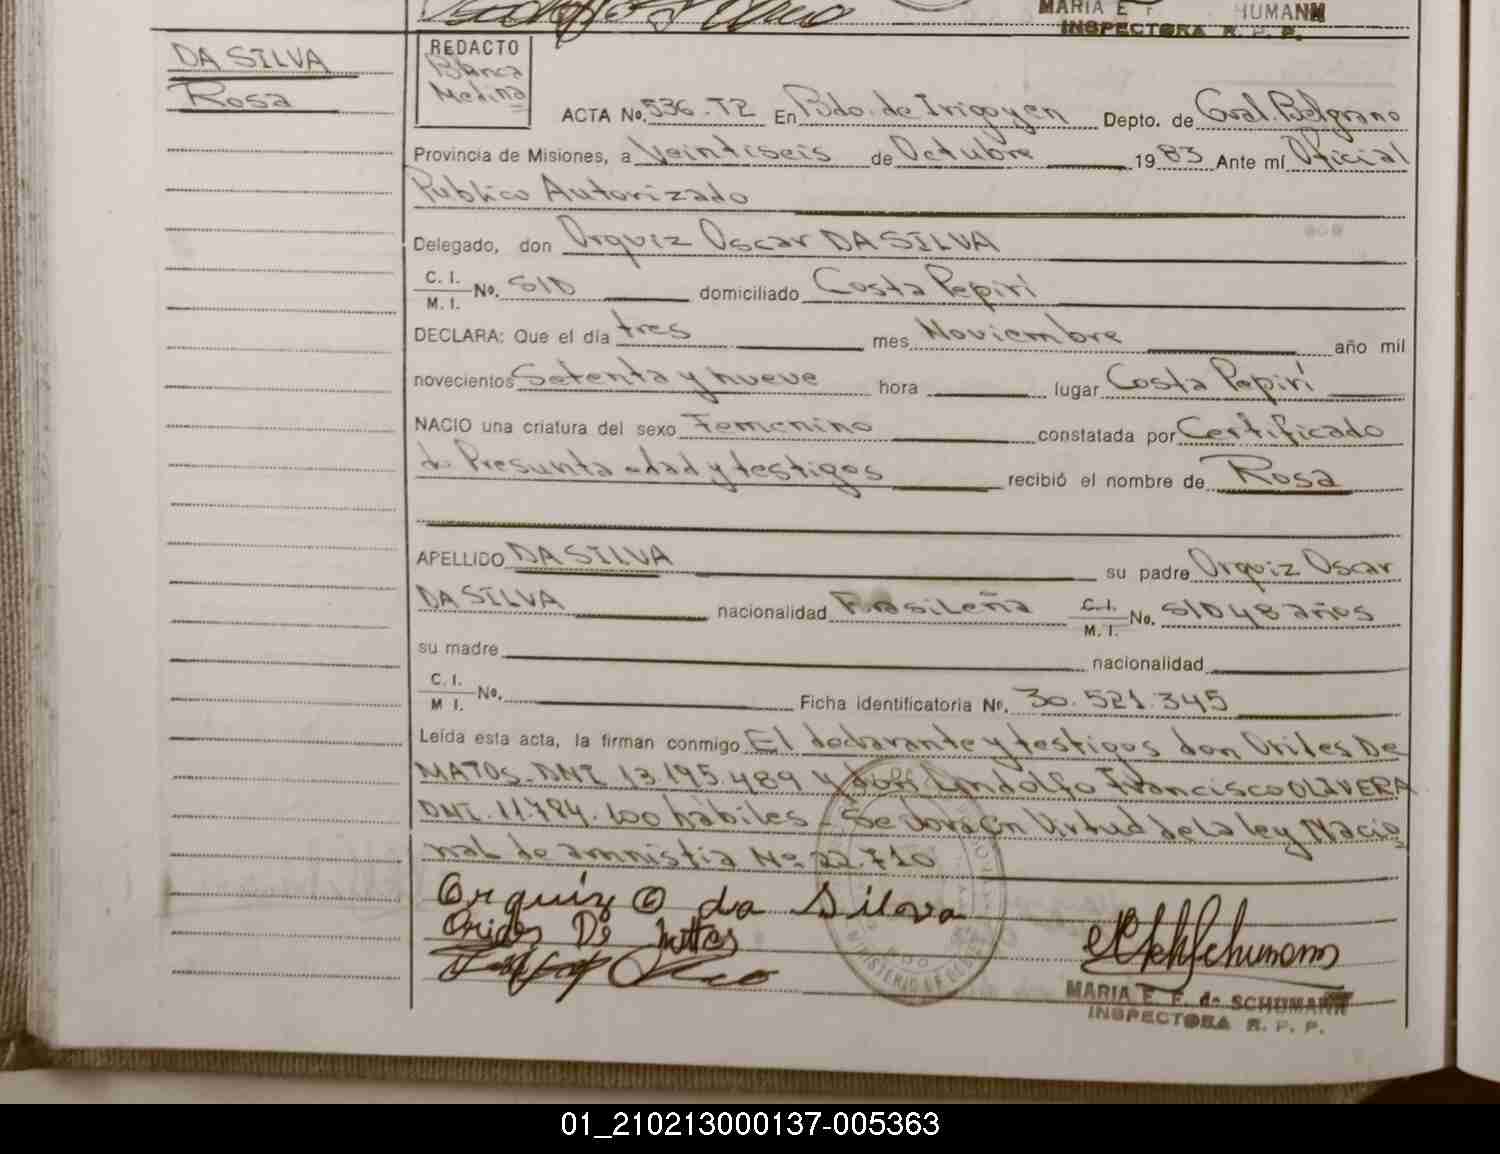 MARIA E F HUMANN
INSPECTORA R. P. P.
DA SILVA
Rosa
REDACTO
Blanca
Medina
ACTA No. 536 - T2 En Bdo. de Irigoyen Depto. de Gral. Belgrano
Provincia de Misiones, a Veintiseis de Octubre 1983 Ante mí Oficial
Publico Autorizado
Delegado, don Orquiz Oscar DA SILVA
C. I.
M. I. No. S/D domiciliado Costa Pepirí
DECLARA: Que el día tres mes Noviembre año mil
novecientos Setenta y nueve hora lugar Costa Pepirí
NACIO una criatura del sexo Femenino constatada por Certificado
de Presunta edad y testigos recibió el nombre de Rosa
APELLIDO DA SILVA su padre Orquiz Oscar
DA SILVA nacionalidad Brasileña C. I.
M. I. No. S/D 48 años
su madre nacionalidad
C. I.
M I. No. Ficha identificatoria No. 30.521.345
Leída esta acta, la firman conmigo El declarante y testigos don Orides De
MATOS - DNI. 13.195.489 y don Lindolfo Francisco OLIVERA
DNI. 11.784.100 hábiles - Se labra En Virtud de la ley Nacio
nal de amnistia No. 22.710
Orquiz O da Silva
Orides De Mattos
MINISTERIO DE GOB
MARIA E. F. de SCHUMANN
INSPECTORA R. P. P.
01_210213000137-005363